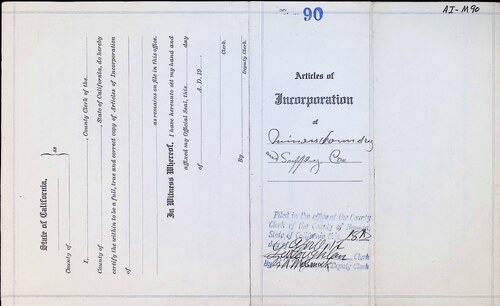 90
AI-M90
Articles of
Incorporation
of
Miners Foundry
and Supply Co
Filed in the office of the County
Clerk of the County of
State of California this 18th
day of April
Clerk
By Deputy Clerk
State of California,
County of
} ss
I, , County Clerk of the
County of , State of California, do hereby
certify the within to be a full, true and correct copy of Articles of Incorporation
of
as remains on file in this office.
In Witness Whereof, I have hereunto set my hand
affixed my Official Seal, this day
of A. D. 19
Clerk.
By
Deputy Clerk.